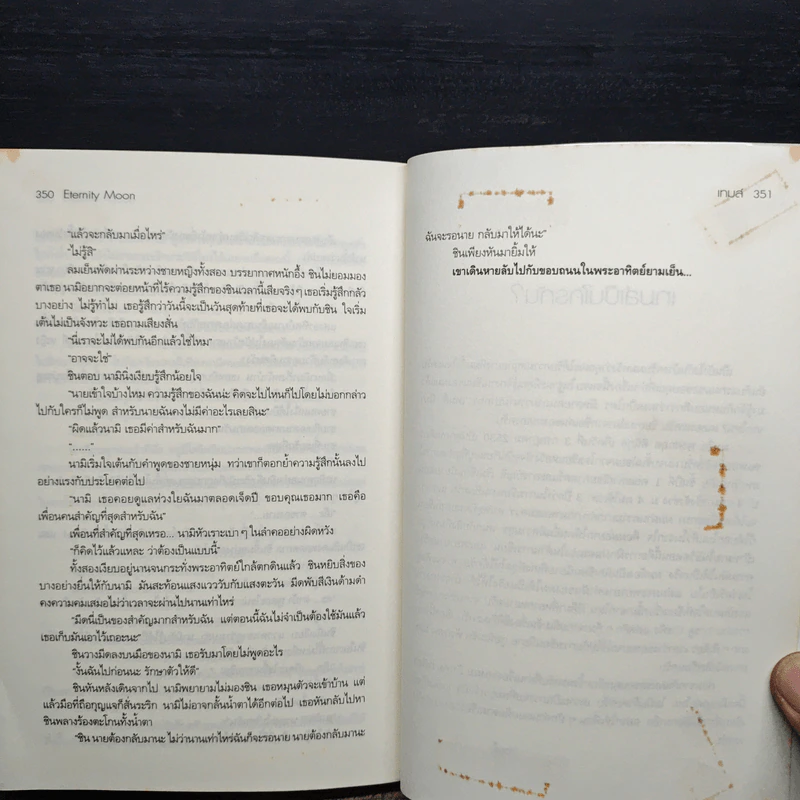 350 Eternity Moon
"แล้วจะกลับมาเมื่อไหร่"
"ไม่รู้สิ"
ลมเย็นพัดผ่านระหว่างชายหญิงทั้งสอง บรรยากาศหนักอึ้ง ชินไม่ยอมมอง
ตาเธอ นามิอยากจะต่อยหน้าที่ไร้ความรู้สึกของชินเวลานี้เสียจริงๆ เธอเริ่มรู้สึกกลัว
บางอย่าง ไม่รู้ทำไม เธอรู้สึกว่าวันนี้จะเป็นวันสุดท้ายที่เธอจะได้พบกับชิน ใจเริ่ม
เต้นไม่เป็นจังหวะ เธอถามเสียงสั่น
"นี่เราจะไม่ได้พบกันอีกแล้วใช่ไหม"
"อาจจะใช่"
ชินตอบ นามินิ่งเงียบรู้สึกน้อยใจ
"นายเข้าใจบ้างไหม ความรู้สึกของฉันน่ะ คิดจะไปไหนก็ไปโดยไม่บอกกล่าว
ไปกับใครก็ไม่พูด สำหรับนายฉันคงไม่มีค่าอะไรเลยสินะ"
"ผิดแล้วนามิ เธอมีค่าสำหรับฉันมาก"
"......"
นามิเริ่มใจเต้นกับคำพูดของชายหนุ่ม ทว่าเขาก็ตอกย้ำความรู้สึกนั้นลงไป
อย่างแรงกับประโยคต่อไป
"นามิ เธอคอยดูแลห่วงใยฉันมาตลอดเจ็ดปี ขอบคุณเธอมาก เธอคือ
เพื่อนคนสำคัญที่สุดสำหรับฉัน"
เพื่อนที่สำคัญที่สุดเหรอ... นามิหัวเราะเบาๆ ในลำคออย่างผิดหวัง
"ก็คิดไว้แล้วแหละ ว่าต้องเป็นแบบนี้"
ทั้งสองเงียบอยู่นานจนกระทั่งพระอาทิตย์ใกล้ตกดินแล้ว ชินหยิบสิ่งของ
บางอย่างยื่นให้กับนามิ มันสะท้อนแสงแวววับกับแสงตะวัน มีดพับสีเงินด้ามดำ
คงความคมเสมอไม่ว่าเวลาจะผ่านไปนานเท่าไหร่
"มีดนี้เป็นของสำคัญมากสำหรับฉัน แต่ตอนนี้ฉันไม่จำเป็นต้องใช้มันแล้ว
เธอเก็บมันเอาไว้เถอะนะ"
ชินวางมีดลงบนมือของนามิ เธอรับมาโดยไม่พูดอะไร
"งั้นฉันไปก่อนนะ รักษาตัวให้ดี"
ชินหันหลังเดินจากไป นามิพยายามไม่มองชิน เธอหมุนตัวจะเข้าบ้าน แต่
แล้วมือที่ถือกุญแจก็สั่นระริก นามิไม่อาจกลั้นน้ำตาได้อีกต่อไป เธอหันกลับไปหา
ชินพลางร้องตะโกนทั้งน้ำตา
"ชิน นายต้องกลับมานะ ไม่ว่านานเท่าไหร่ฉันก็จะรอนาย นายต้องกลับมานะ
เกมส์ 351
ฉันจะรอนาย กลับมาให้ได้นะ"
ชินเพียงหันมายิ้มให้
เขาเดินหายลับไปกับขอบถนนในพระอาทิตย์ยามเย็น...